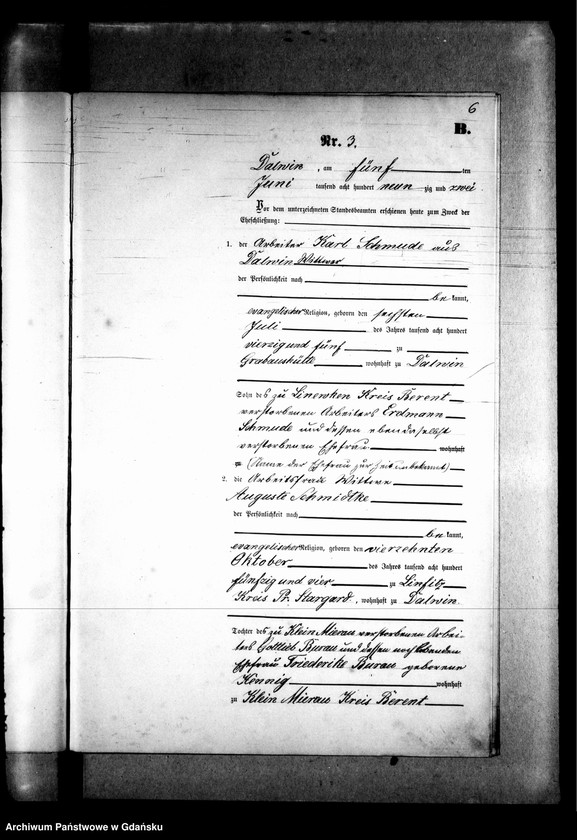 6
B.
Nr. 3.
Dalwin, am fünf ten
Juni tausend acht hundert neun zig und zwei.
Vor dem unterzeichneten Standesbeamten erschienen heute zum Zweck der
Eheschließung:
1. der Arbeiter Karl Schmude aus
Dalwin Wittwer
der Persönlichkeit nach
be kannt,
evangelischer Religion, geboren den sechsten
Juli des Jahres tausend acht hundert
vierzig und fünf zu
Grabaushütte, wohnhaft zu Dalwin
Sohn des zu Linewken Kreis Berent
verstorbenen Arbeiters Erdmann
Schmude und dessen ebendaselbst
verstorbenen Ehefrau wohnhaft
zu (Name der Ehefrau zur Zeit unbekannt)
2. die Arbeitsfrau Wittwe
Auguste Schmidtke
der Persönlichkeit nach
be kannt,
evangelischer Religion, geboren den vierzehnten
Oktober des Jahres tausend acht hundert
fünfzig und vier zu
Kreis Pr. Stargard, wohnhaft zu Dalwin
Tochter des zu Klein Mierau verstorbenen Arbei-
ters Gottlieb Burau und dessen noch lebenden
Ehefrau Friederike Burau geborene
Konnig wohnhaft
zu Klein Mierau Kreis Berent
Archiwum Państwowe w Gdańsku